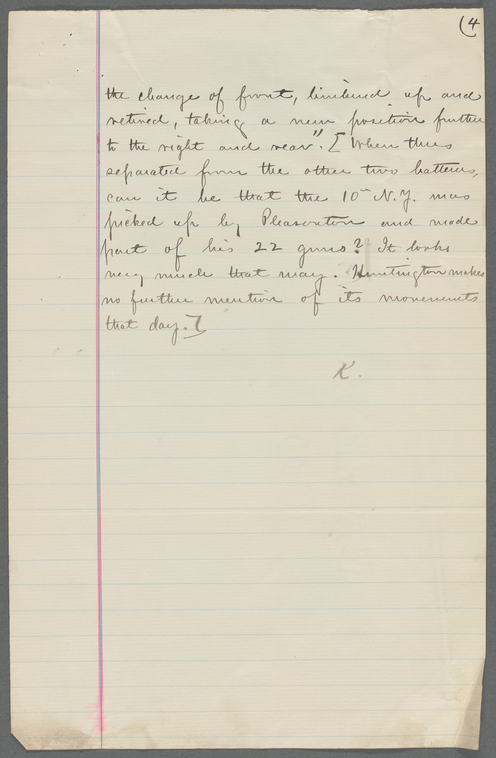 (4
the change of front, limbered up and
retired, taking a new position further
to the right and rear". [When thus
separated from the other two batteries,
can it be that the 10th N.Y. was
picked up by Pleasonton and made
part of his 22 guns? It looks
very much that way. Huntington makes
no further mention of its movements
that day.]
K.